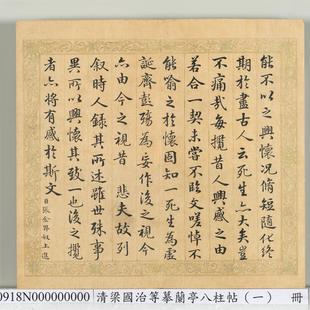 能不以之興懷況脩短隨化終
期於盡古人云死生亦大矣豈
不痛哉每攬昔人興感之由
若合一契未嘗不臨文嗟悼不
能喻之於懷固知一死生為虛
誕齊彭殤為妄作後之視今
亦由今之視昔 悲夫故列
叙時人錄其所述雖世殊事
異所以興懷其致一也後之攬
者亦將有感於斯文
張金界奴上進
0918N000000000 清梁國治等摹蘭亭八柱帖(一) 冊